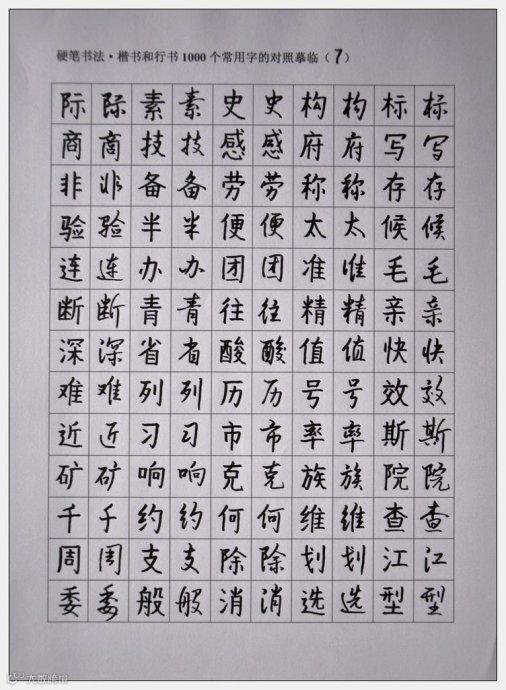 硬笔书法·楷书和行书1000个常用字的对照摹临（7）
际际素素史史构构标标
商商技技感感府府写写
非非备备劳劳称称存存
验验半半便便太太候候
连连办办团团准准毛毛
断断青青往往精精亲亲
深深省省酸酸值值快快
难难列列历历号号效效
近近习习市市率率斯斯
矿矿响响克克族族院院
千千约约何何维维查查
周周支支除除划划江江
委委般般消消选选型型